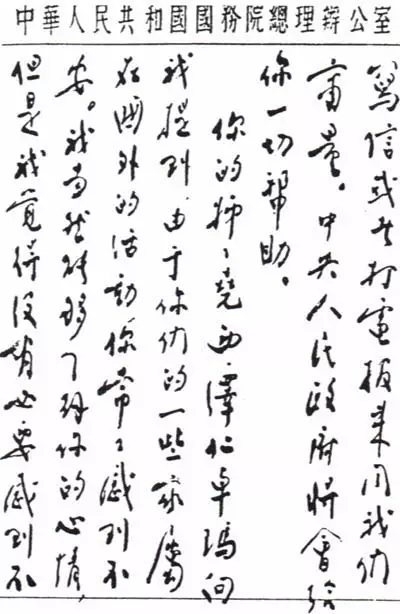 中華人民共和國國務院總理辦公室
寫信或者打電报来同我们
商量。中央人民政府將會給
你一切幇助。
你的姊〻堯西澤仁卓瑪向
我提到由于你们的一些亲屬
在國外的活動你常〻感到不
安。我当然能够了解你的心情，
但是我覚得没有必要感到不